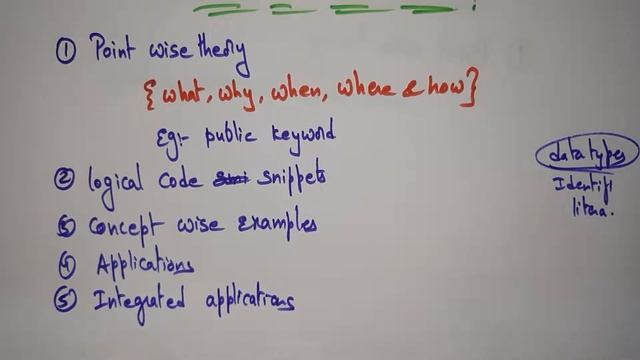 ① Point wise theory
{ what, why, when, where & how }
Eg:- public keyword
② logical code snippets
③ Concept wise examples
④ Applications
⑤ Integrated applications
data types
Identifi
litera.